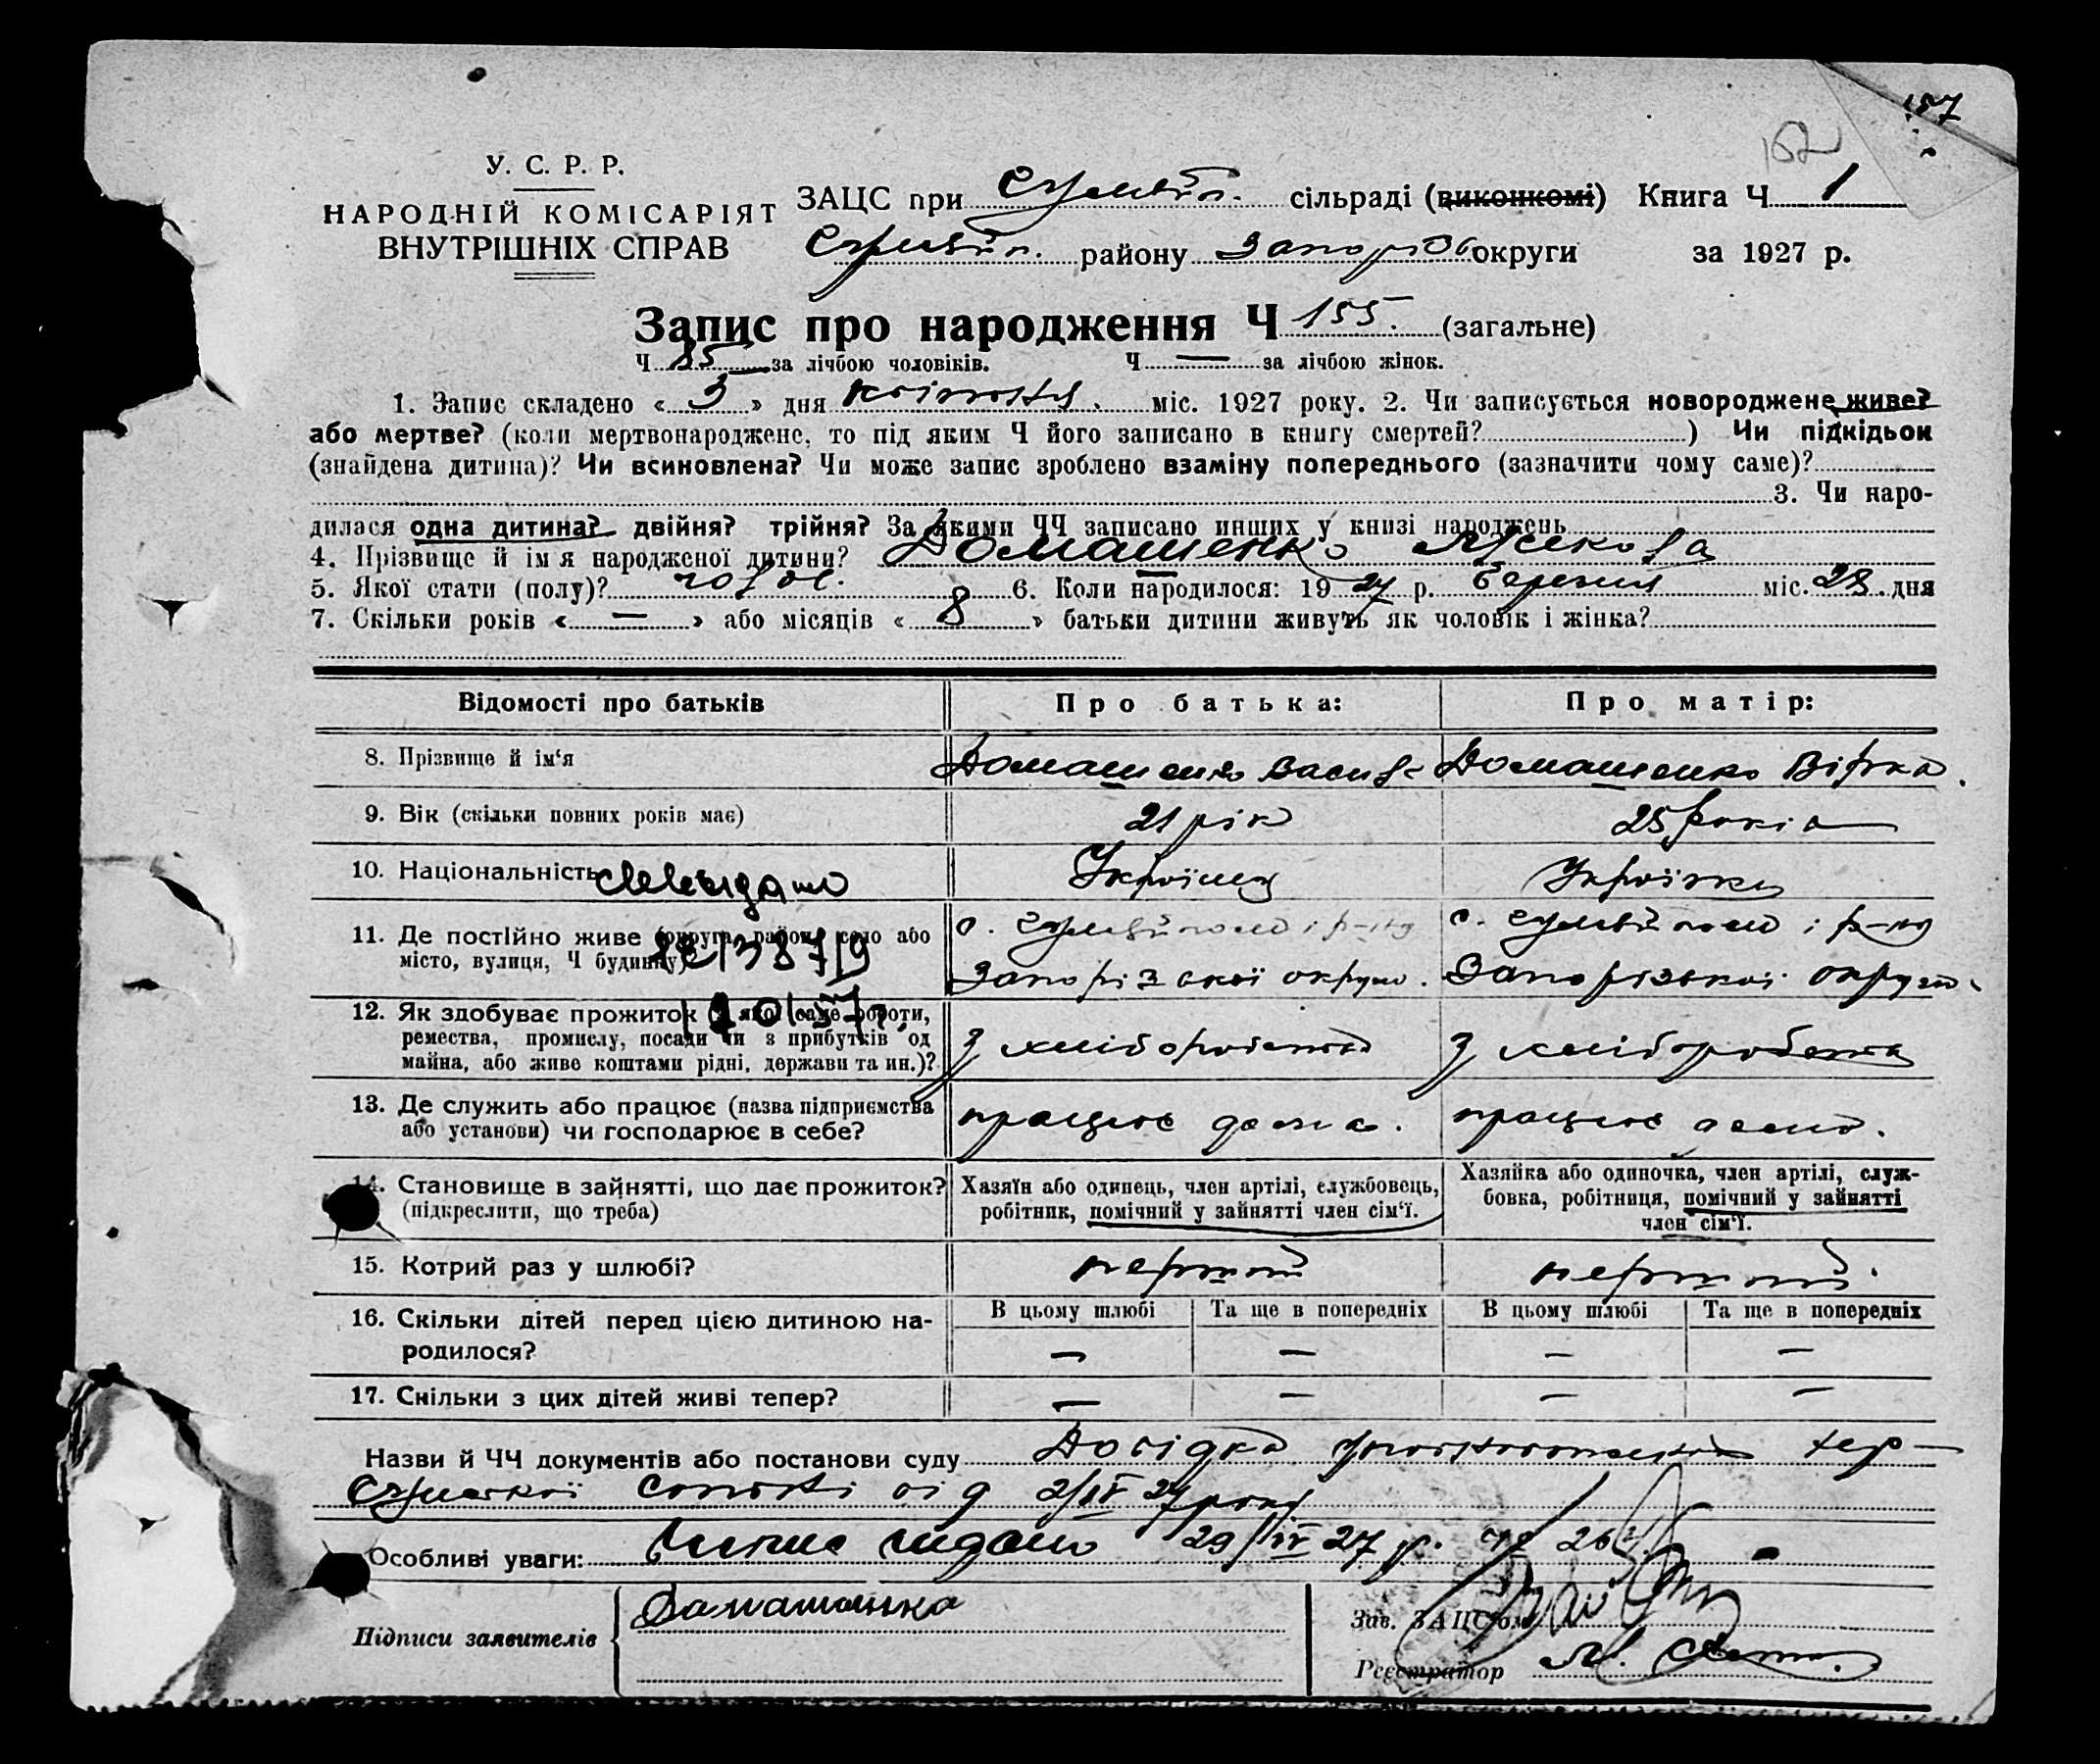 157
152
У. С. Р. Р.
НАРОДНІЙ КОМІСАРІЯТ
ВНУТРІШНІХ СПРАВ
ЗАЦС при сільраді (виконкомі) Книга Ч 1
району округи за 1927 р.
Запис про народження Ч 155. (загальне)
Ч 85 за лічбою чоловіків. Ч — за лічбою жінок.
1. Запис складено « 5 » дня квітня міс. 1927 року. 2. Чи записується новороджене живе?
або мертве? (коли мертвонароджене, то під яким Ч його записано в книгу смертей? ) Чи підкідьок
(знайдена дитина)? Чи всиновлена? Чи може запис зроблено взаміну попереднього (зазначити чому саме)?
3. Чи наро-
дилася одна дитина? двійня? трійня? За якими ЧЧ записано инших у книзі народжень
4. Прізвище й ім'я народженої дитини? Домашенко
5. Якої стати (полу)? чолов. 6. Коли народилося: 19 27 р. березня міс. 28 дня
7. Скільки років « — » або місяців « 8 » батьки дитини живуть як чоловік і жінка?
Відомості про батьків
Про батька:
Про матір:
8. Прізвище й ім'я
Домашенко Василь
Домашенко Вірка.
9. Вік (скільки повних років має)
21 рік
25 років
10. Національність
Українец
Українка
11. Де постійно живе (округа, район, село або
місто, вулиця, Ч будинку)
с. і р-ну
Запорізької округи.
с. і р-ну
Запорізької округи.
12. Як здобуває прожиток (з якої саме роботи,
ремества, промислу, посади чи з прибутків од
майна, або живе коштами рідні, держави та ин.)?
З хліборобства
З хліборобства
13. Де служить або працює (назва підприємства
або установи) чи господарює в себе?
працює дома.
працює дома.
14. Становище в зайнятті, що дає прожиток?
(підкреслити, що треба)
Хазяїн або одинець, член артілі, службовець,
робітник, помічний у зайнятті член сім'ї.
Хазяйка або одиночка, член артілі, служ-
бовка, робітниця, помічний у зайнятті
член сім'ї.
15. Котрий раз у шлюбі?
перший
перший.
16. Скільки дітей перед цією дитиною на-
родилося?
В цьому шлюбі
Та ще в попередніх
В цьому шлюбі
Та ще в попередніх
— — — —
17. Скільки з цих дітей живі тепер?
— — — —
Назви й ЧЧ документів або постанови суду Довідка
від 2/IV 27 року
Особливі уваги: видано 29/IV 27 р.
Підписи заявителів
Домашенко
Зав. ЗАЦС'ом
Реєстратор